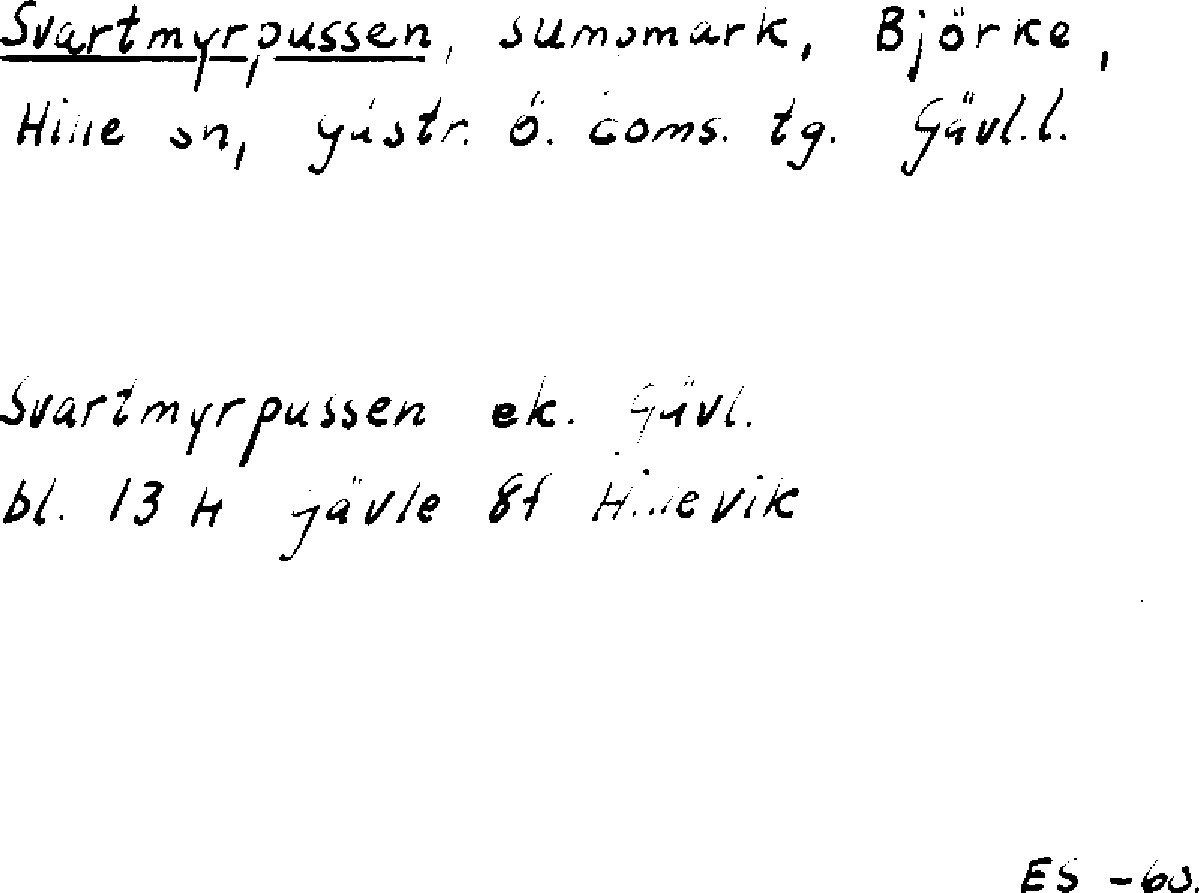 Svartmyrpussen, sumpmark, Björke,
Hille sn, Gästr. ö. doms. tg. Gävl.l.
Svartmyrpussen ek. Gävl.
bl. 13 H Gävle 8f Hillevik
ES